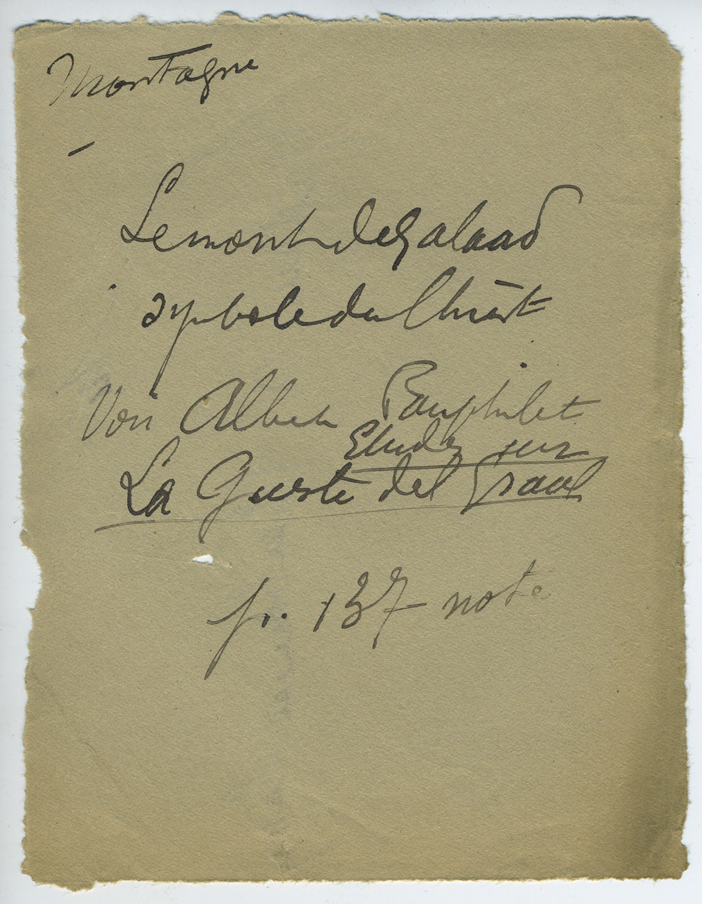 Montagne
—
Le mont de Galaad
symbole du Christ
Voir Albert Pauphilet
Etudes sur
La Queste del Graal
p. 137 note